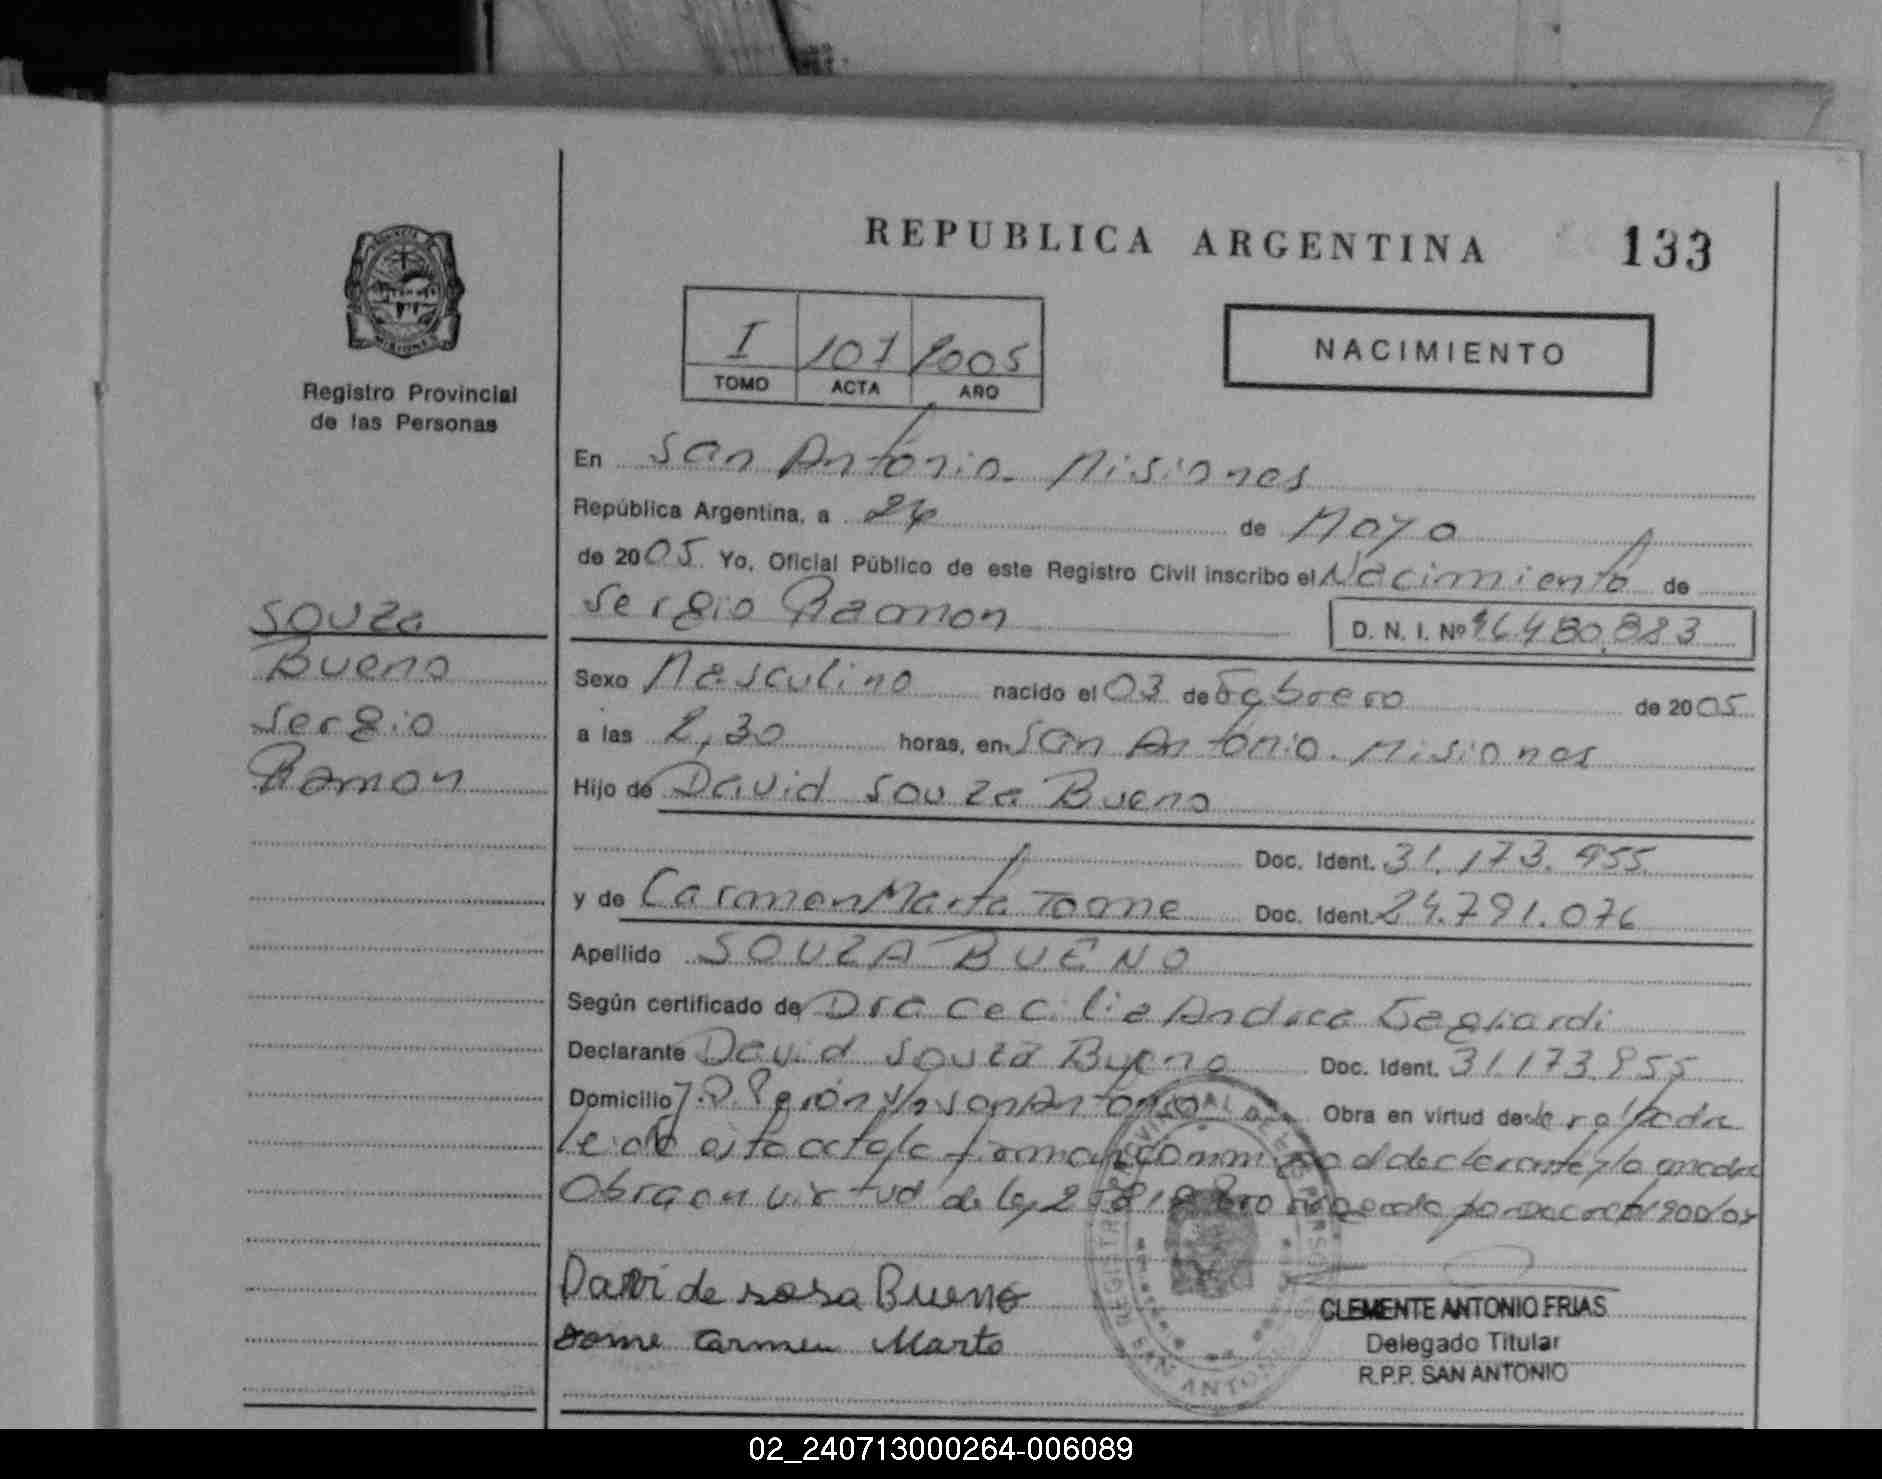 REPUBLICA ARGENTINA 133
I 101 2005
TOMO ACTA AÑO
NACIMIENTO
Registro Provincial
de las Personas
En San Antonio. Misiones
República Argentina, a 24 de Mayo
de 2005. Yo, Oficial Público de este Registro Civil inscribo el Nacimiento de
Sergio Ramon D. N. I. Nº 46.480.883
Souza
Bueno
Sergio
Ramon
Sexo Masculino nacido el 03 de Febrero de 2005
a las 2,30 horas, en San Antonio. Misiones
Hijo de David Souza Bueno
Doc. Ident. 31.173.955
y de Carmen Marta Tome Doc. Ident. 24.791.076
Apellido SOUZA BUENO
Según certificado de Dra Cecilia Andrea
Declarante David Souza Bueno Doc. Ident. 31.173.955
Domicilio J.D. Perón s/n San Antonio Obra en virtud de
Leida esta acta la firman conmigo el declarante y la madre
Obra en virtud de ley
Davi de sosa Bueno
Tome Carmen Marta
CLEMENTE ANTONIO FRIAS
Delegado Titular
R.P.P. SAN ANTONIO
02_240713000264-006089